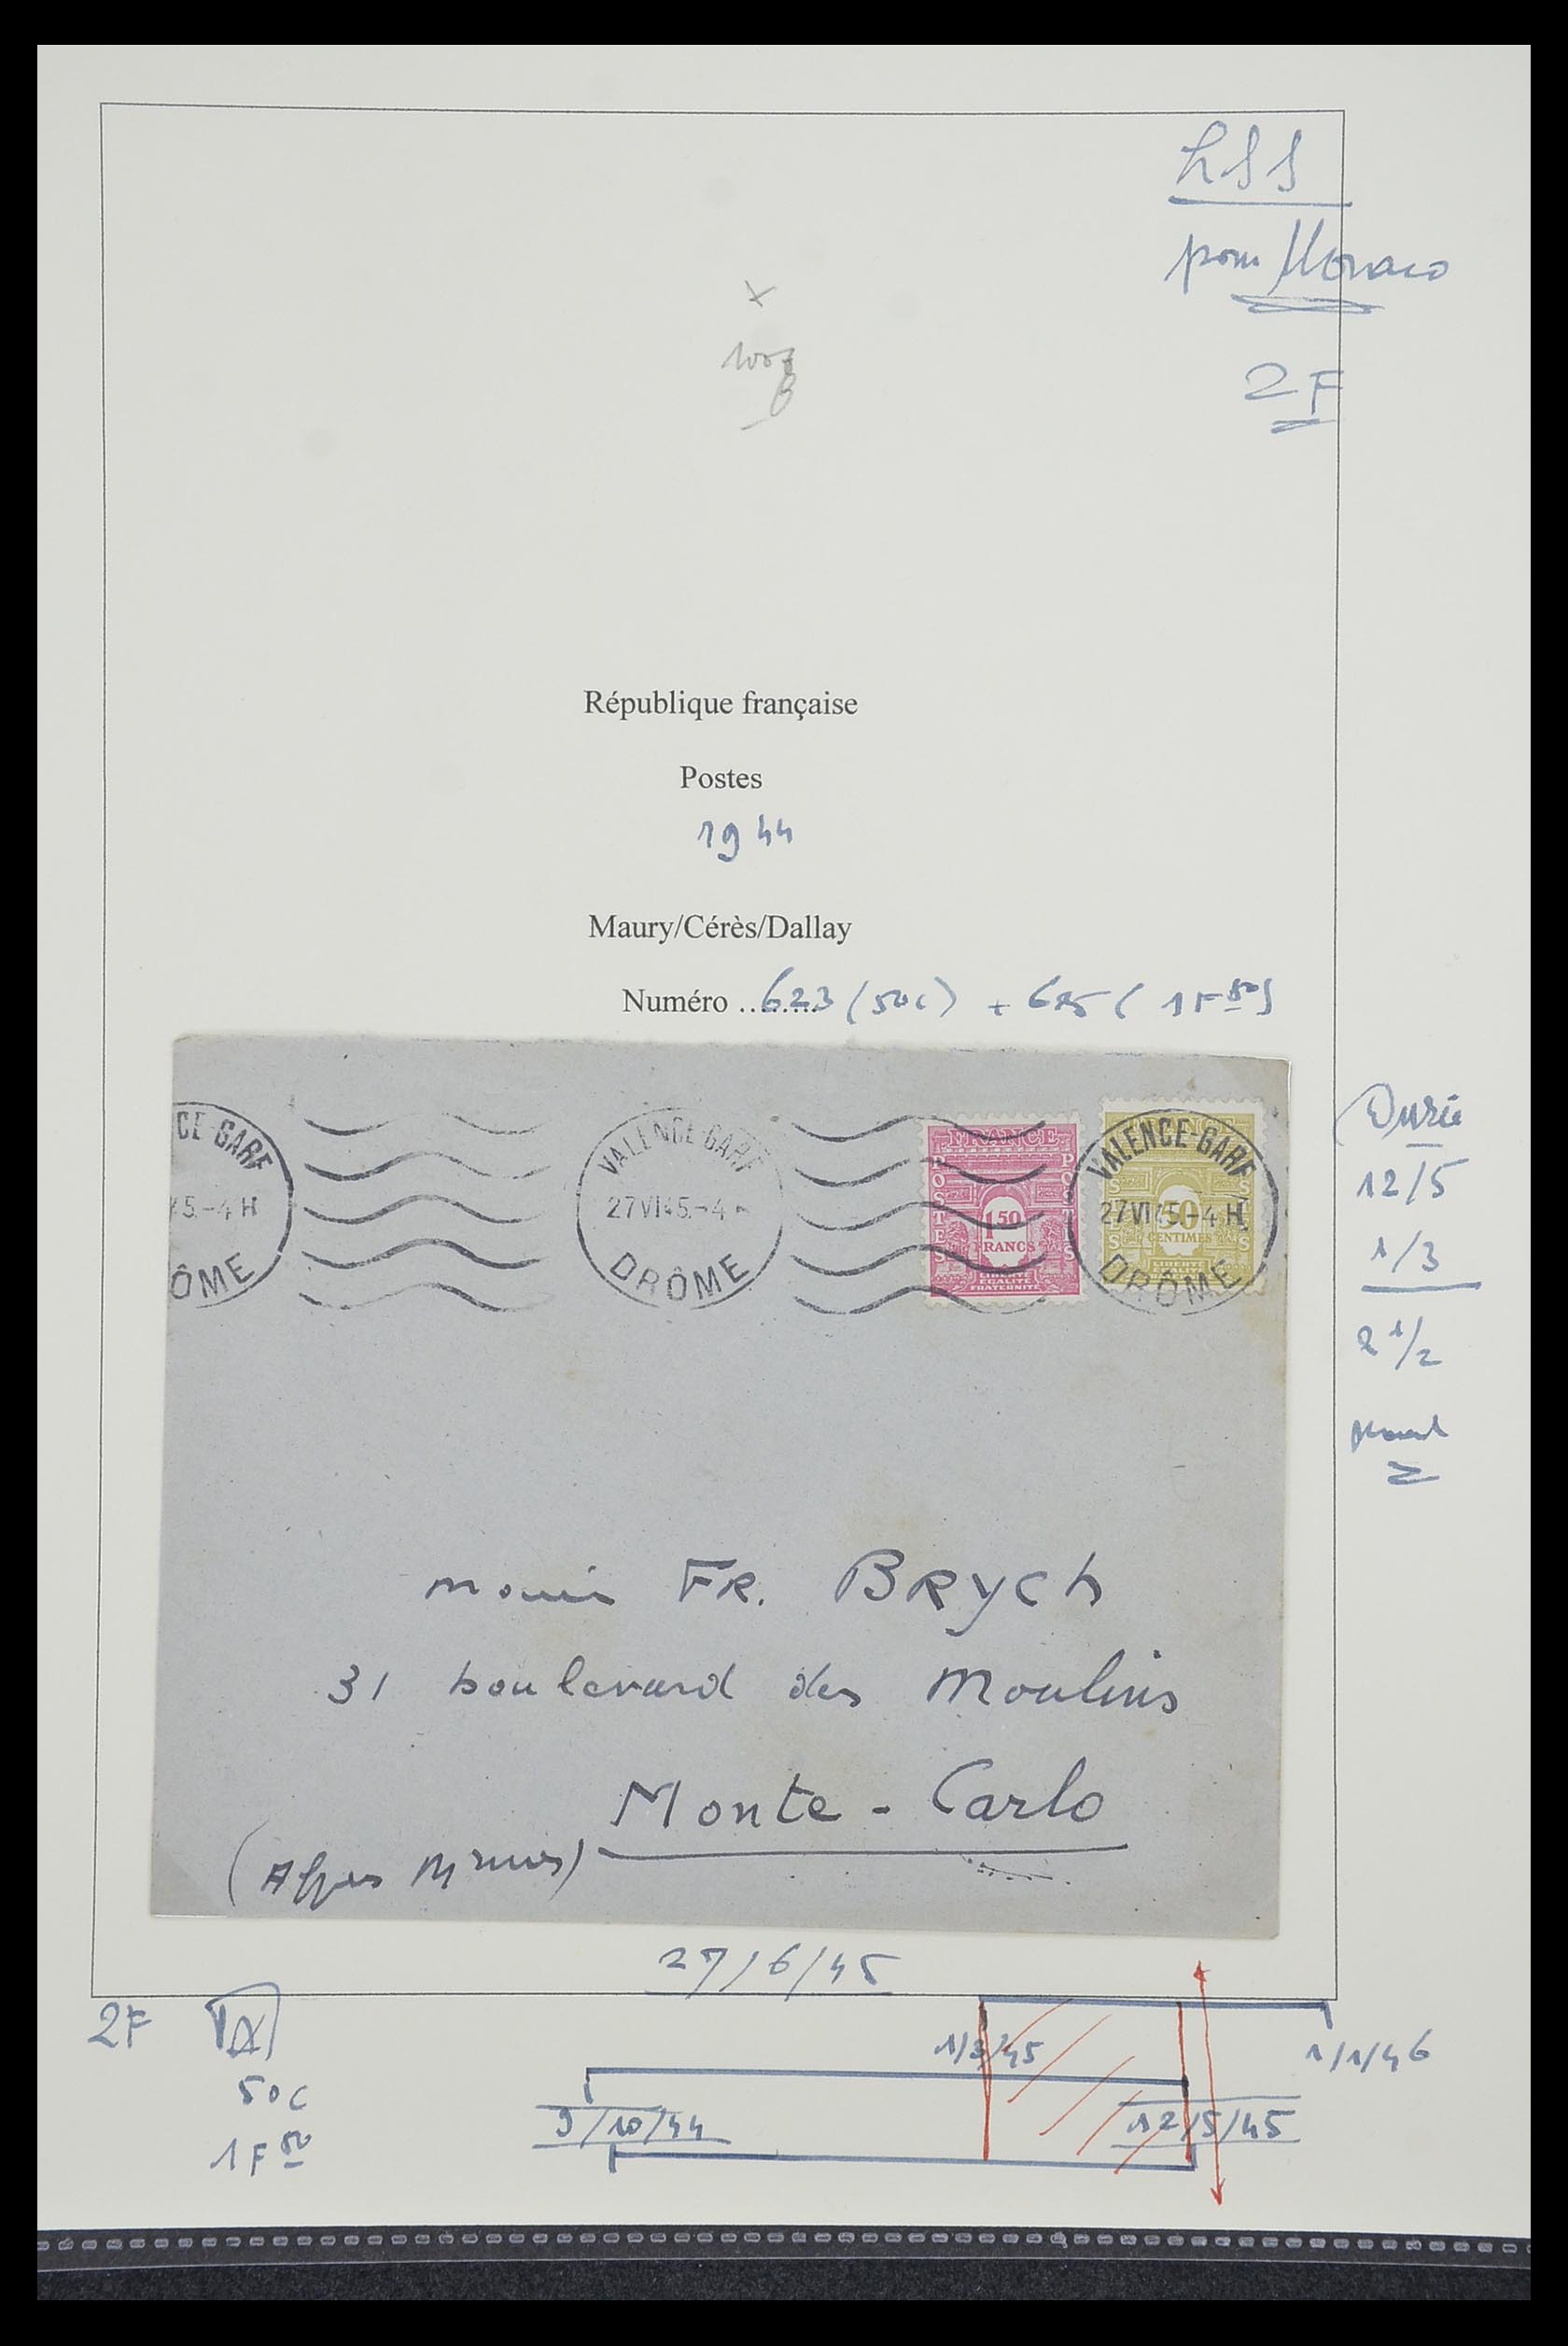 LSS
pour Monaco
2F
République française
Postes
1944
Maury/Cérès/Dallay
Numéro ........ 623 (50c) + 625 (1F 50)
CE-GARE
45.-4 H
ÔME
VALENCE-GARE
27 VI 45.-4
DRÔME
FRANCE
POSTES
1,50
FRANCS
LIBERTÉ
EGALITÉ
FRATERNITÉ
VALENCE-GARE
27 VI 45.-4 H
DRÔME
50
CENTIMES
Durée
12/5
1/3
2 1/2
FR. BRYCH
31 boulevard des Moulins
Monte-Carlo
(Alpes Mmes)
27/6/45
2F
1/3/45
1/1/46
50c
9/10/44
12/5/45
1F 50